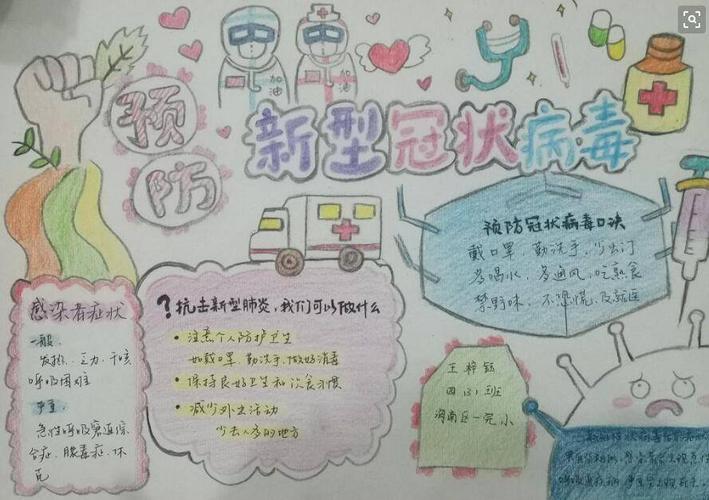 预防
新型冠状病毒
加油
加油
预防冠状病毒口决
戴口罩 勤洗手，少出门
多喝水，多通风，吃熟食
禁野味，不恐慌，及就医
感染者症状
一般：
发热、乏力、干咳
呼吸困难
严重：
急性呼吸窘迫综
合症、脓毒症、休
克
?抗击新型肺炎，我们可以做什么
• 注意个人防护卫生
如戴口罩、勤洗手、做好消毒
• 保持良好卫生和饮食习惯
• 减少外出活动
少去人多的地方
王梓钰
四(3)班
海南区一完小